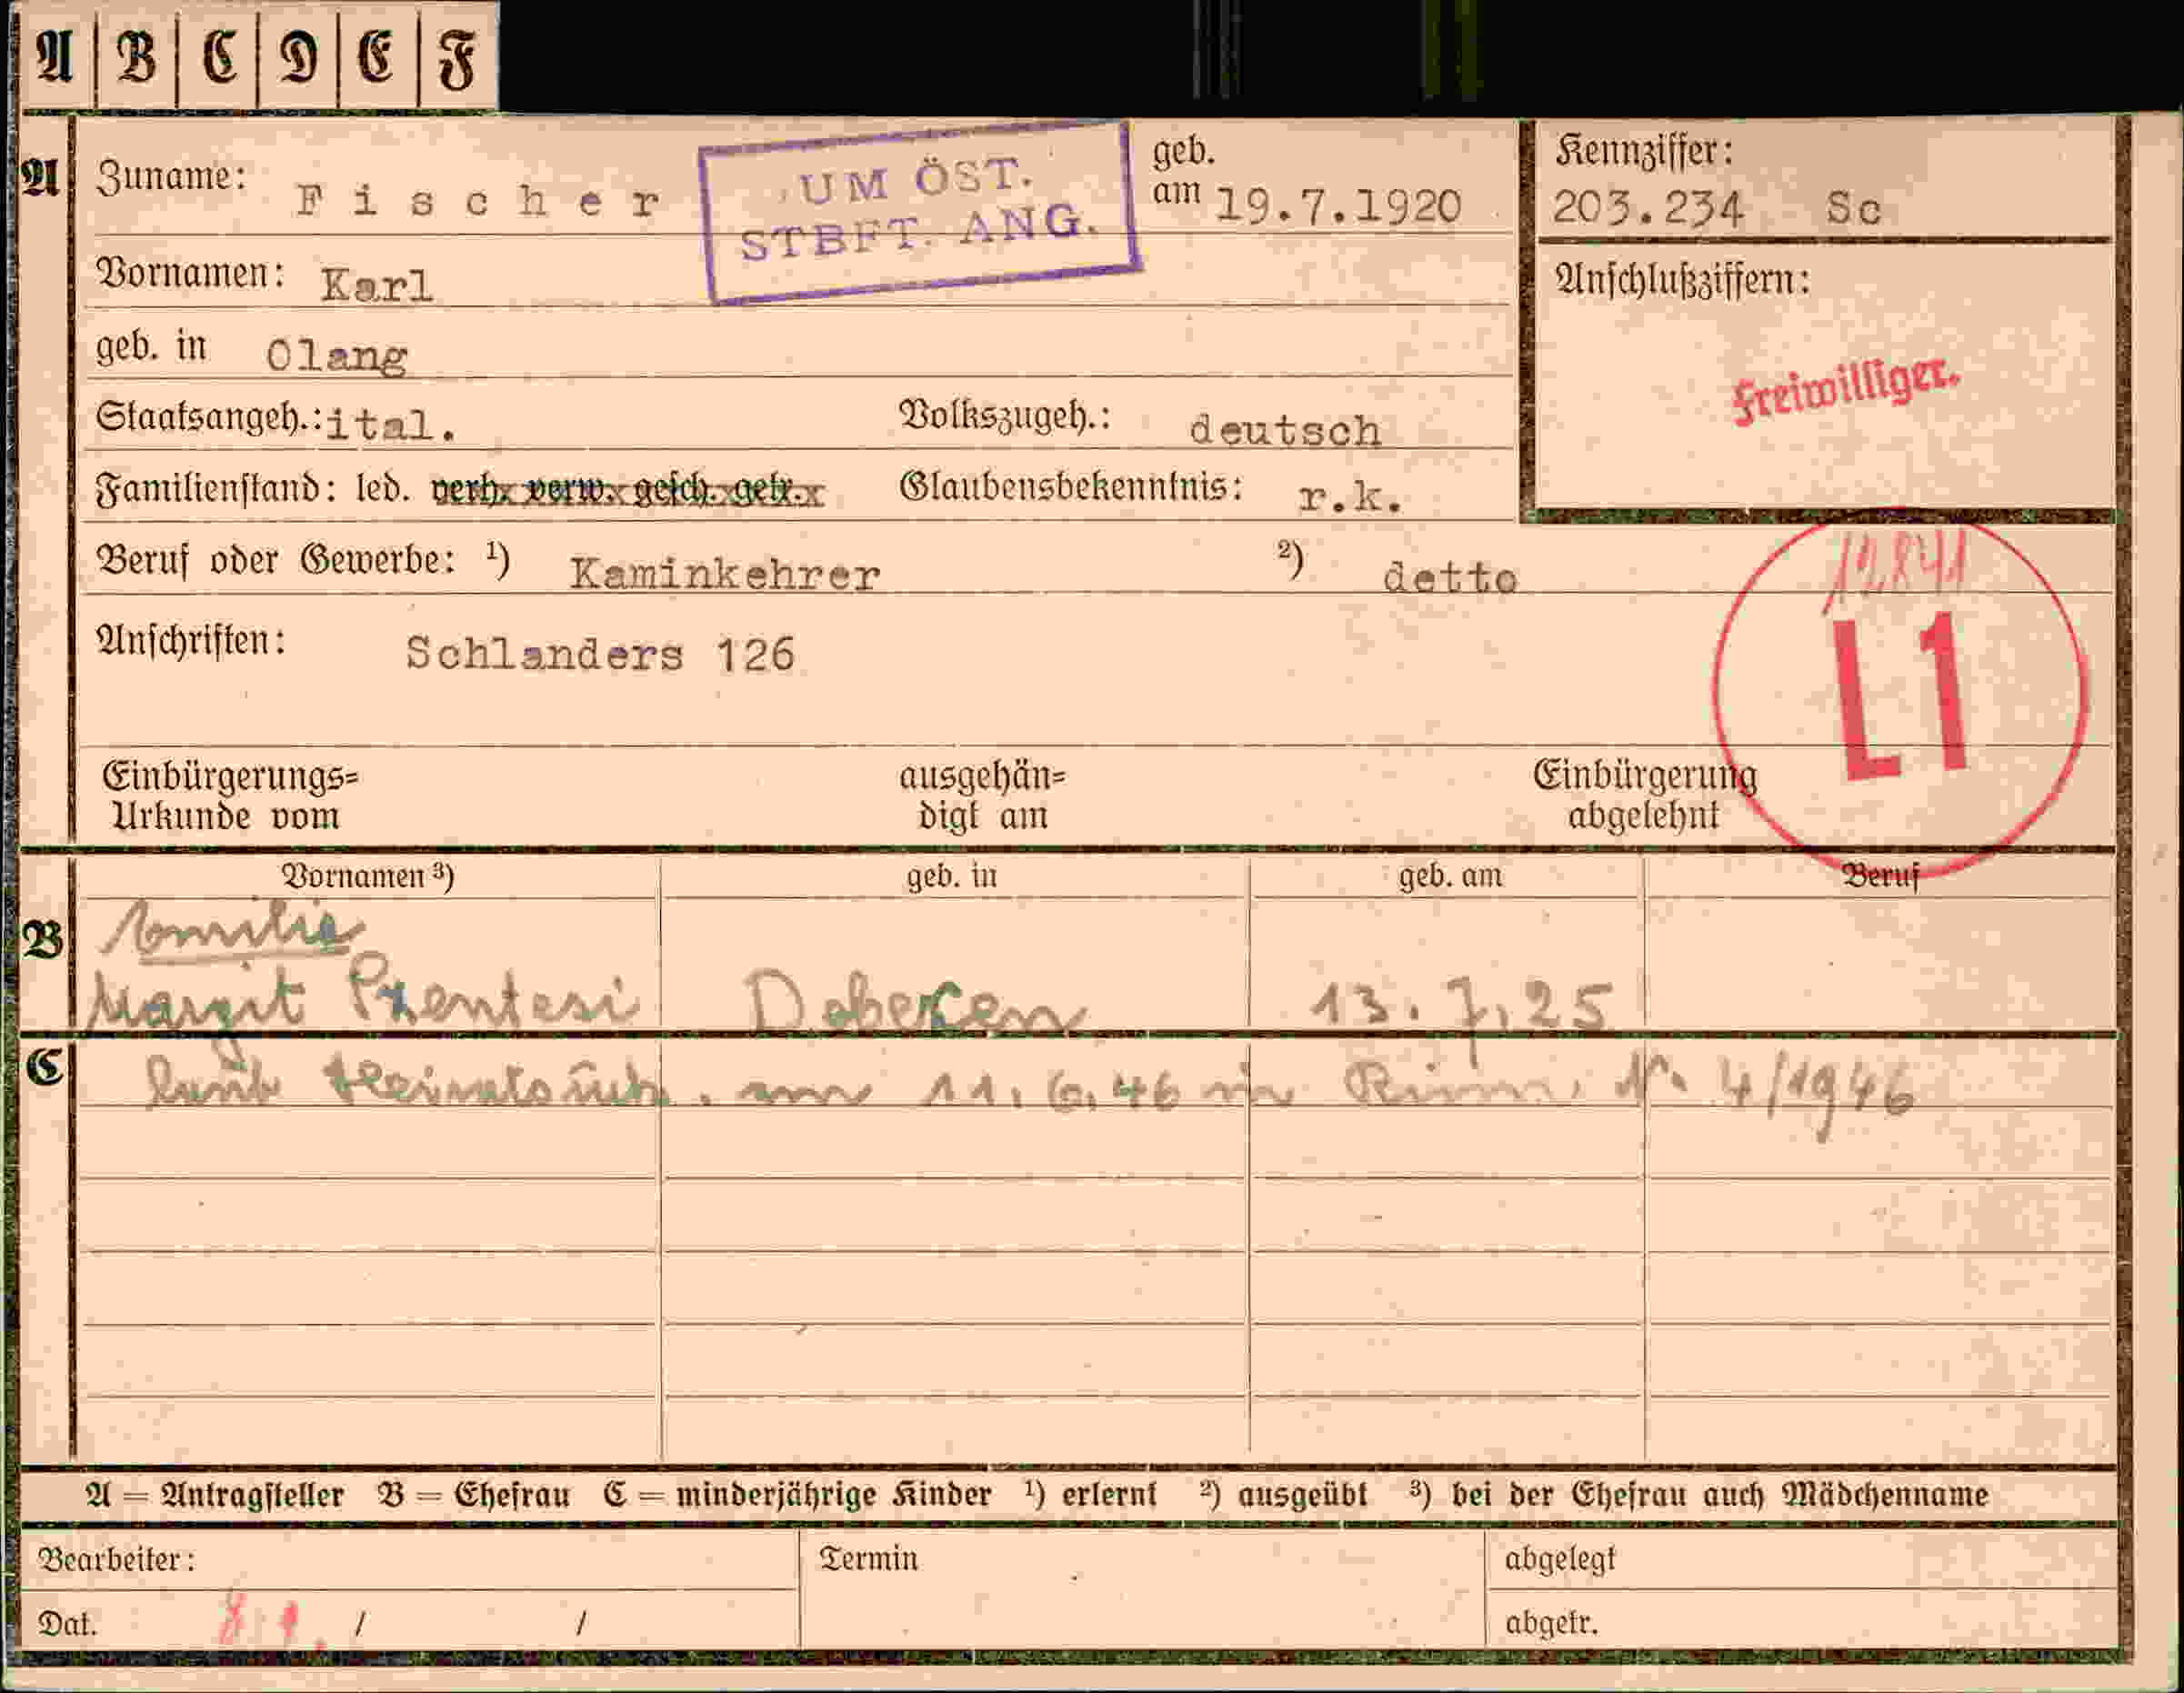 A B C D E F
A Zuname: Fischer
UM ÖST.
STBFT. ANG.
geb. am 19.7.1920
Kennziffer:
203.234 Sc
Vornamen: Karl
Anschlußziffern:
Freiwilliger.
geb. in Olang
Staatsangeh.: ital. Volkszugeh.: deutsch
Familienstand: led. verh. verw. gesch. getr. Glaubensbekenntnis: r.k.
Beruf oder Gewerbe: ¹) Kaminkehrer ²) detto
12841
L1
Anschriften: Schlanders 126
Einbürgerungs=
Urkunde vom
ausgehän=
digt am
Einbürgerung
abgelehnt
Vornamen ³) geb. in geb. am Beruf
B Emilie
Margit 13.7.25
C am 11.6.46 in 4/1946
A = Antragsteller B = Ehefrau C = minderjährige Kinder ¹) erlernt ²) ausgeübt ³) bei der Ehefrau auch Mädchenname
Bearbeiter: Termin abgelegt
Dat. / / abgetr.